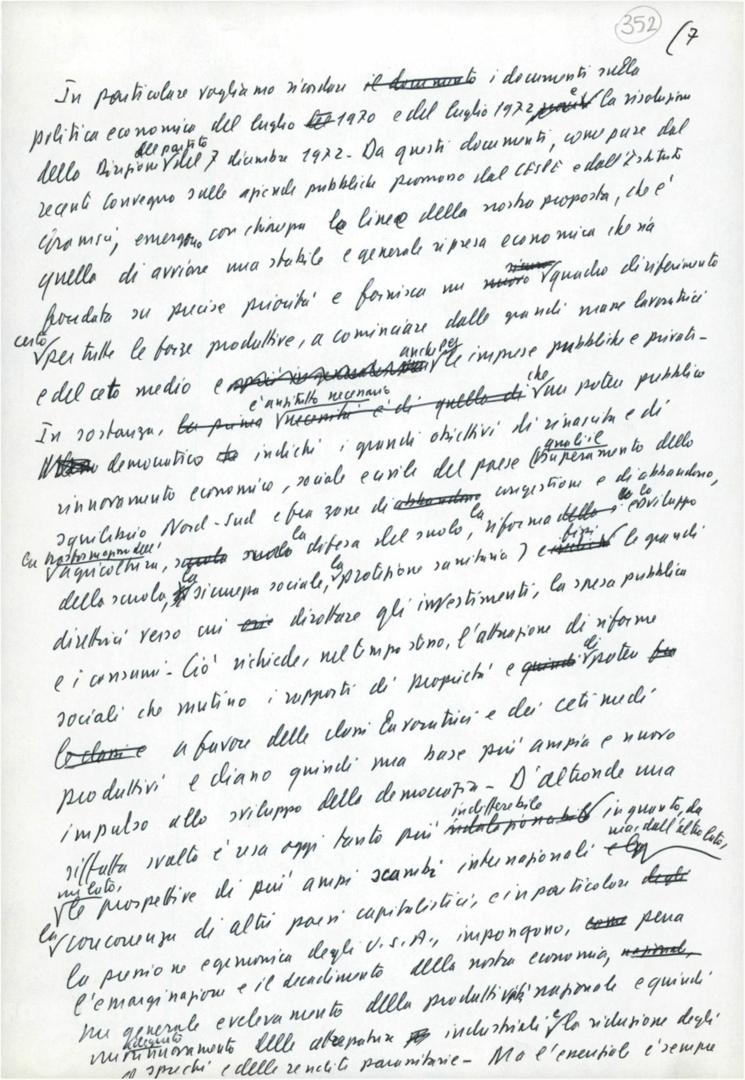 352 (7
In particolare vogliamo ricordare il documento i documenti sulla
politica economica del luglio 1970 e del luglio 1972 e la risoluzione
della Direzione del partito del 7 dicembre 1972 - Da questi documenti, come pure dal
recente convegno sulle aziende pubbliche promosso dal CESPE e dall'Istituto
Gramsci, emergono con chiarezza le linee della nostra proposta, che è
quella di avviare una stabile e generale ripresa economica che sia
fondata su precise priorità e fornisca un nuovo sicuro quadro di riferimento
certo per tutte le forze produttive, a cominciare dalle grandi masse lavoratrici
e del ceto medio e anche per le imprese pubbliche e private -
In sostanza, la prima necessità è di quello di è anzitutto necessario che un potere pubblico
democratico indichi i grandi obiettivi di rinascita e di
rinnovamento economico, sociale e civile del paese (superamento dello
squilibrio Nord-Sud e fra zone di abbandono congestione e di abbandono,
la trasformazione dell'agricoltura, scuola la difesa del suolo, la riforma della e lo sviluppo
della scuola, la sicurezza sociale, la protezione sanitaria) e fissi le grandi
direttrici verso cui dirottare gli investimenti, la spesa pubblica
e i consumi - Ciò richiede, nel tempo stesso, l'attuazione di riforme
sociali che mutino i rapporti di proprietà e quindi di potere
le classi e a favore delle classi lavoratrici e dei ceti medi
produttivi e diano quindi una base più ampia e nuovo
impulso allo sviluppo della democrazia - D'altronde una
siffatta svolta è resa oggi tanto più indilazionabile indifferibile in quanto, da
un lato, le prospettive di più ampi scambi internazionali ma, dall'altro lato,
la concorrenza di altri paesi capitalistici, e in particolare degli
la pressione egemonica degli U.S.A., impongono, come pena
l'emarginazione e il decadimento della nostra economia, nazionale,
un generale elevamento della produttività nazionale e quindi
un adeguato rinnovamento delle attrezzature industriali e la riduzione degli
sprechi e delle rendite parassitarie - Ma l'essenziale è sempre